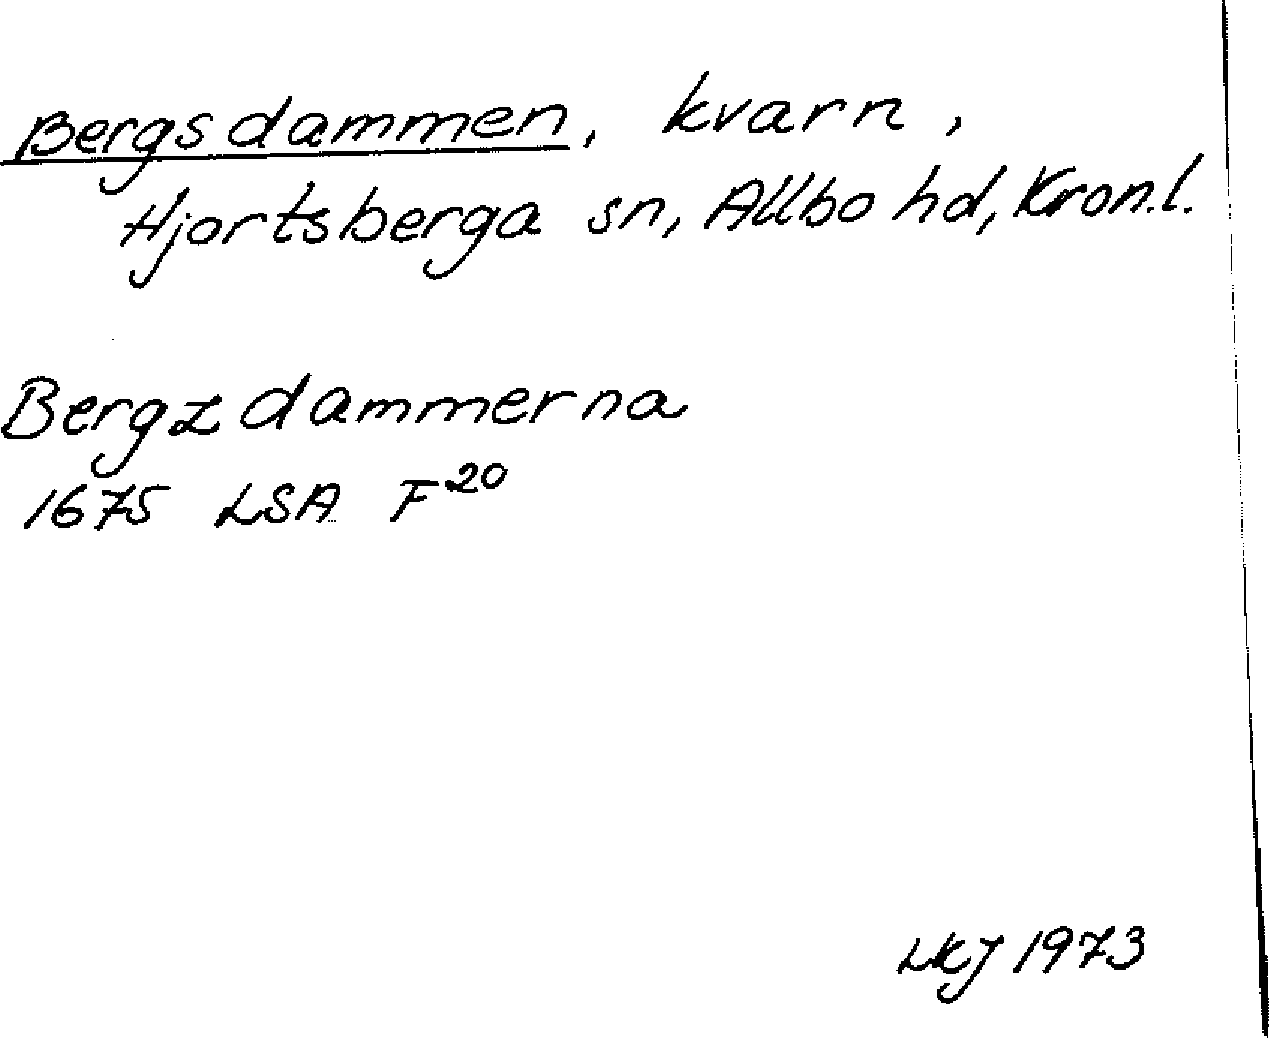 Bergsdammen, kvarn,
Hjortsberga sn, Allbo hd, Kron.l.
Bergzdammerna
1675 LSA F20
LKJ 1973